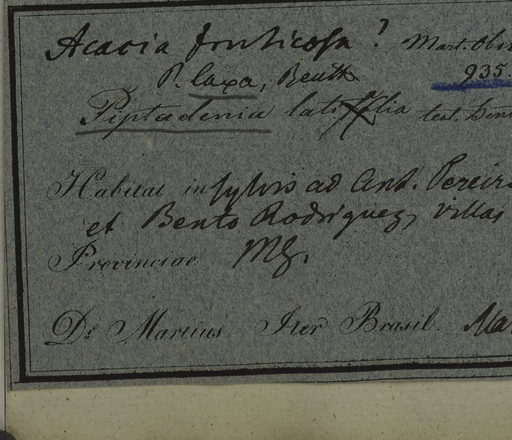 Acacia fruticosa? Mart. Obs.
P. laxa, Benth 935.
Piptadenia latifolia test. Benth
Habitat in sylvis ad Ant. Pereira
et Bento Rodriguez, villas
Provinciae Mg.
Dr Martius Iter Brasil. Ma